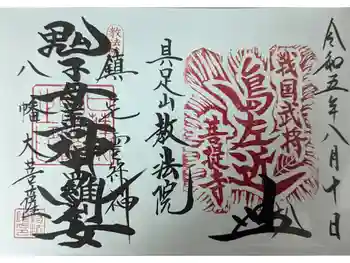 令和五年八月十日
戦国武将
島左近
菩提寺
具足山教法院
鎮宅霊符神
鬼子母善神
八幡大菩薩